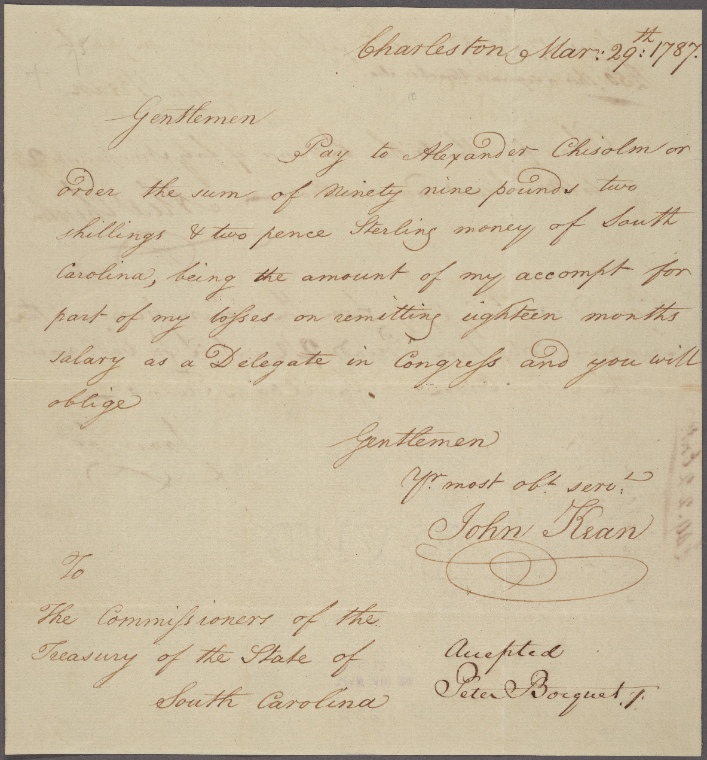 Charleston Mar: 29:th 1787.
Gentlemen
Pay to Alexander Chisolm or
order the sum of Ninety nine pounds two
shillings & two pence Sterling money of South
Carolina, being the amount of my accompt for
part of my losses on remitting eighteen months
salary as a Delegate in Congress and you will
oblige
Gentlemen
Yr. most obt. servt.
John Kean
To
The Commissioners of the
Treasury of the State of
South Carolina
Accepted
Peter Bocquet